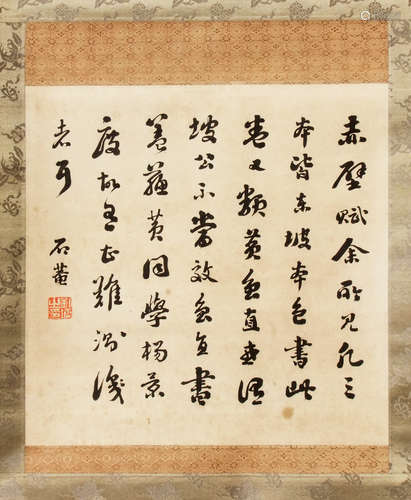 赤壁賦余所見凡三
本皆東坡本色書此
卷又類黃魯直謂
坡公不當效魯直書
蓋蘇黃同學楊景
度故難識
者耳
石菴